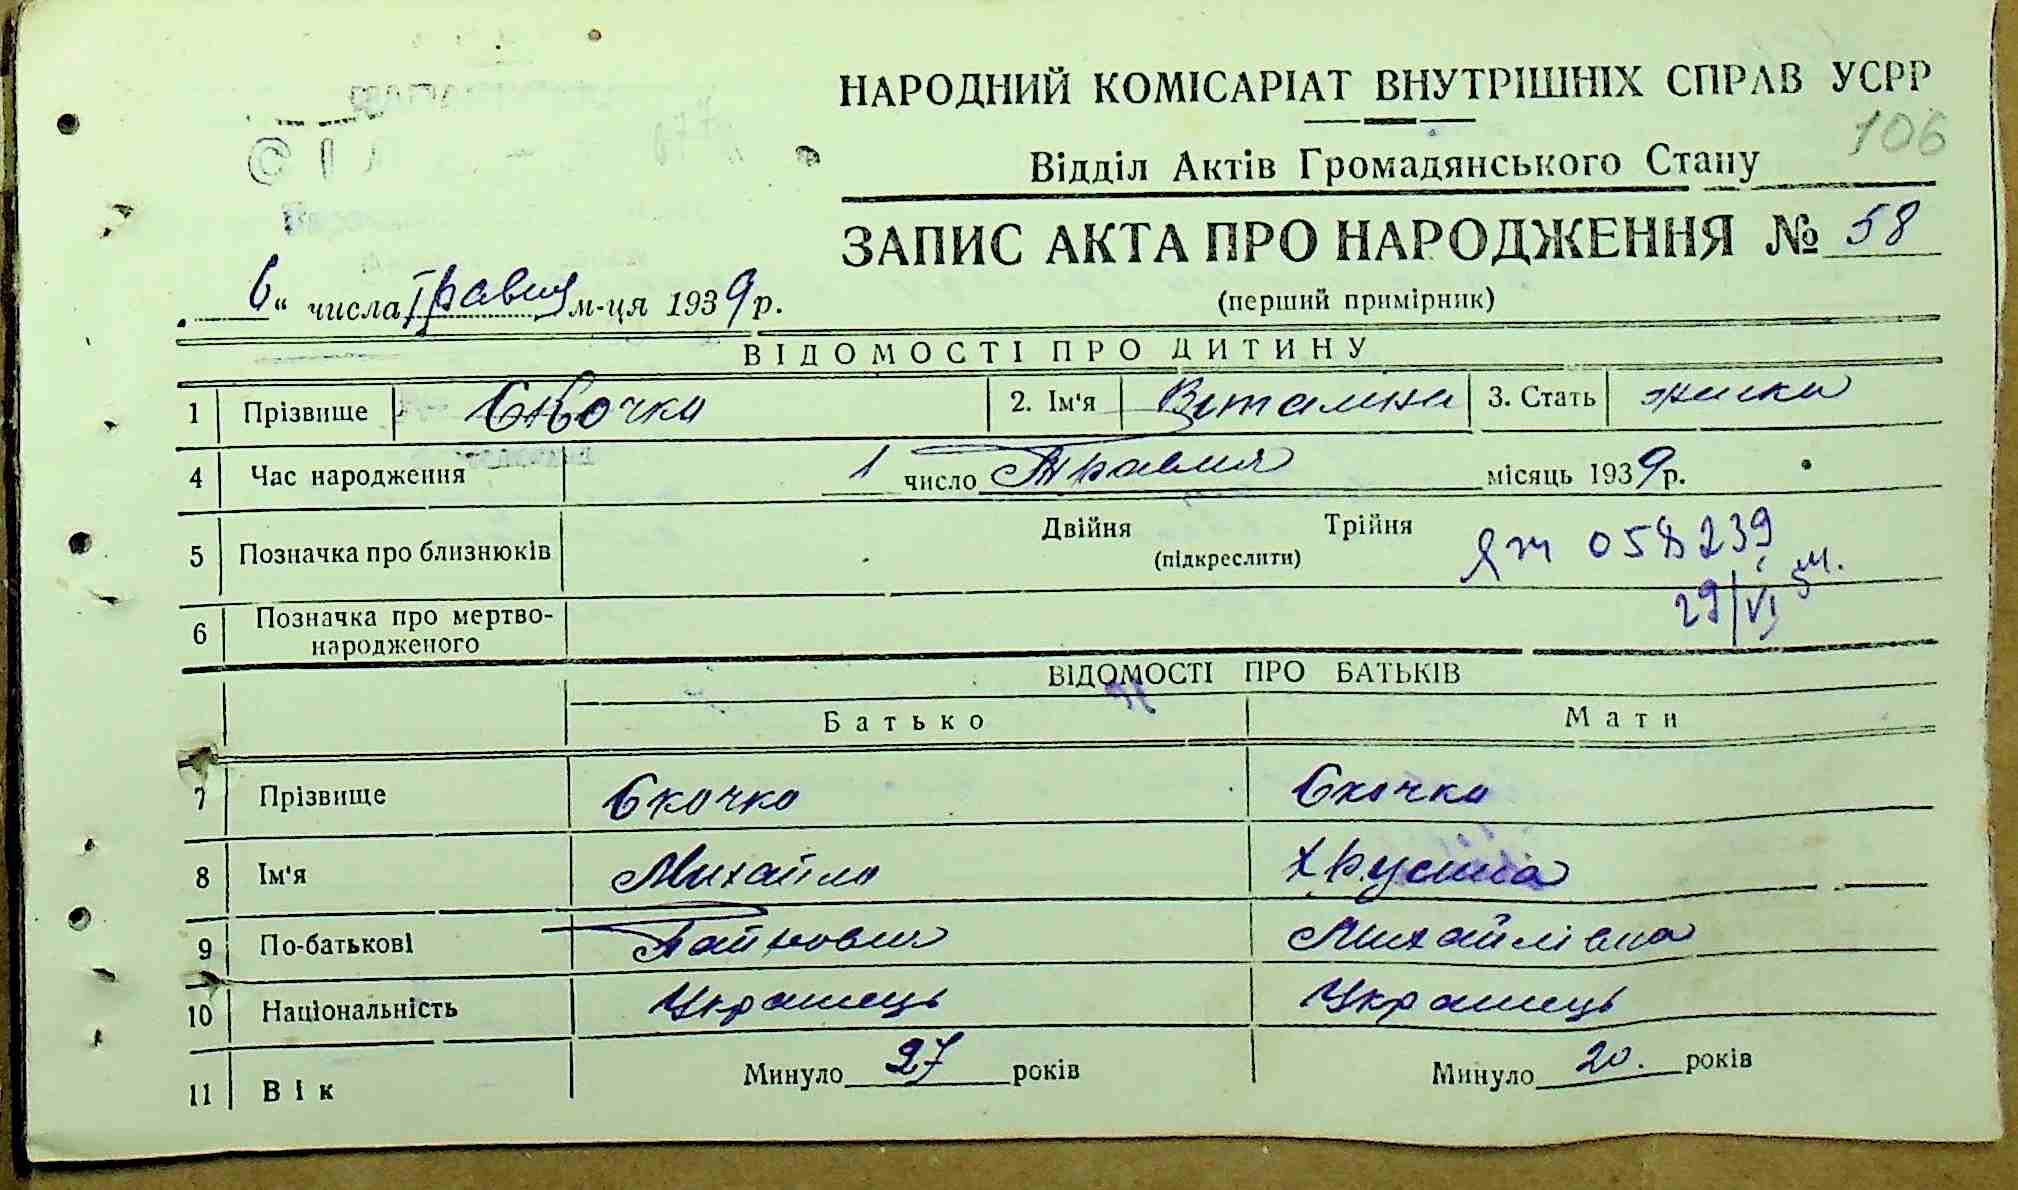 НАРОДНИЙ КОМІСАРІАТ ВНУТРІШНІХ СПРАВ УСРР
106
Відділ Актів Громадянського Стану
ЗАПИС АКТА ПРО НАРОДЖЕННЯ № 58
6 “ числа Травня м-ця 1939 р.
(перший примірник)
ВІДОМОСТІ ПРО ДИТИНУ
1 Прізвище Скочко 2. Ім'я Віталина 3. Стать жіноч
4 Час народження 1 число Травня місяць 1939 р.
5 Позначка про близнюків Двійня Трійня
(підкреслити)
ЯТ 058239
29/VI
6 Позначка про мертво-
народженого
ВІДОМОСТІ ПРО БАТЬКІВ
Батько Мати
7 Прізвище Скочко Скочко
8 Ім'я Михайло Хрустіна
9 По-батькові Михайлівна
10 Національність Українець Українець
11 Вік Минуло 27 років Минуло 20. років